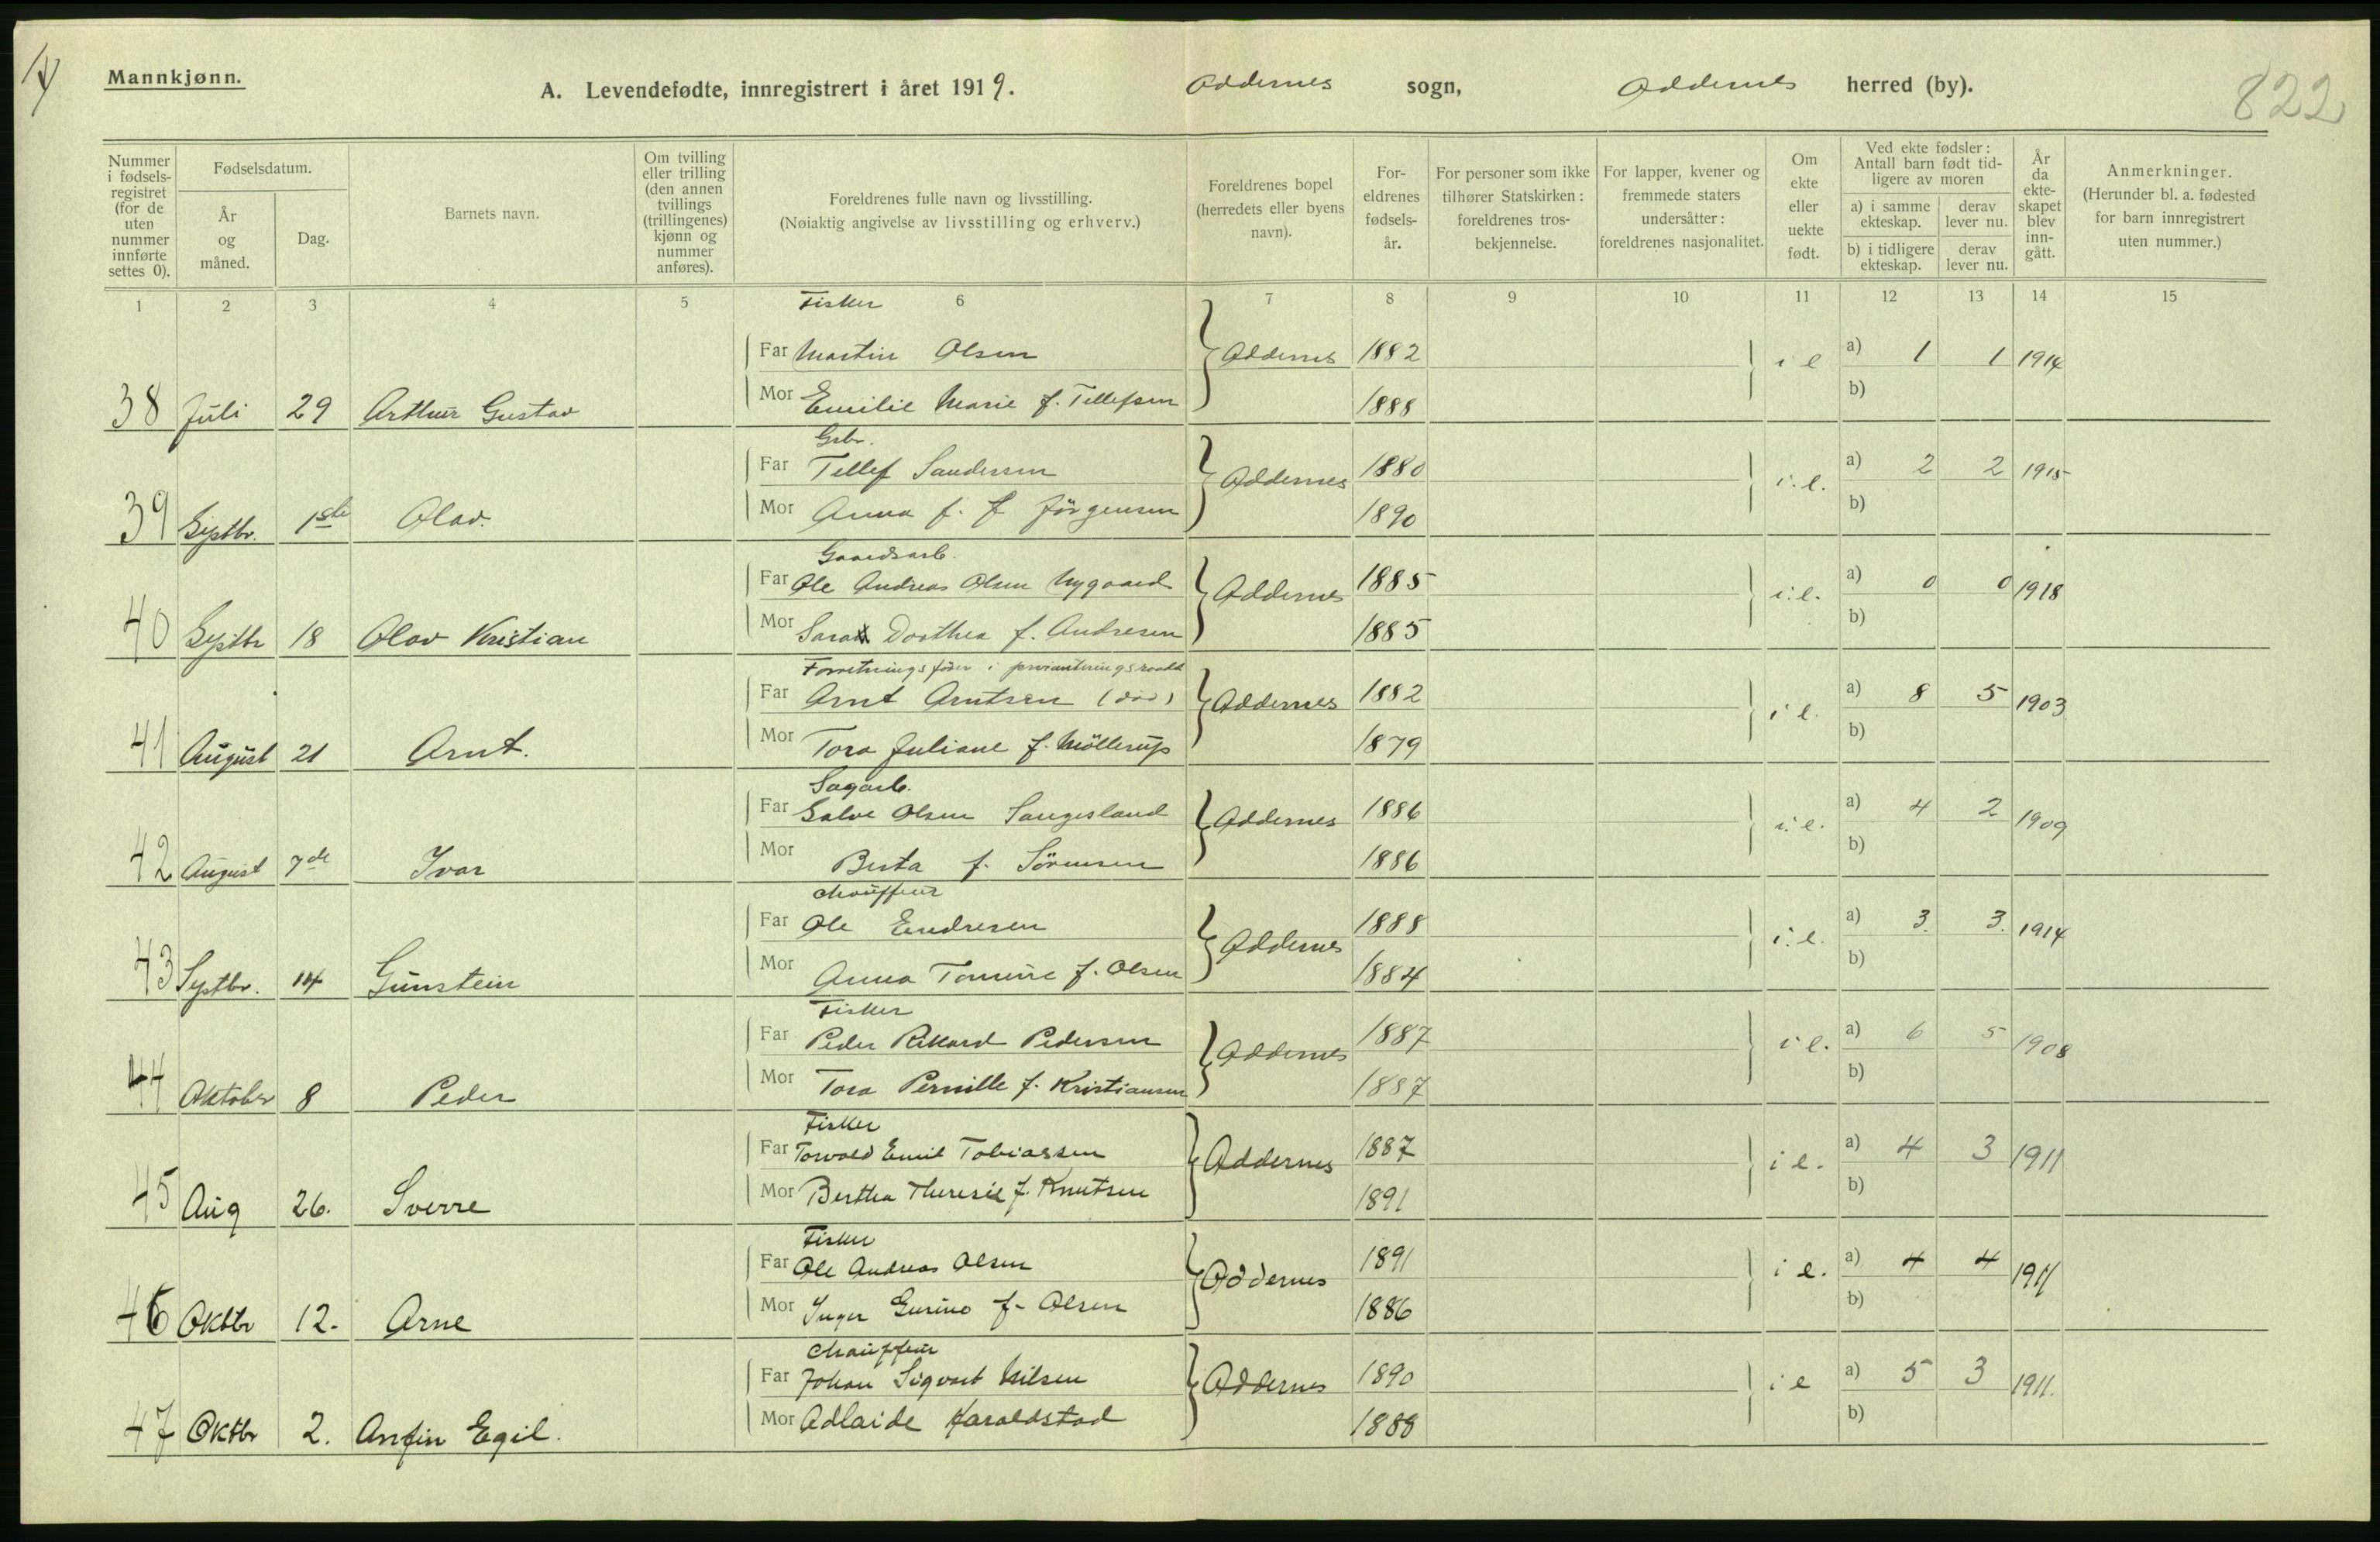 Mannkjønn.
A. Levendefødte, innregistrert i året 1919. Oddernes sogn, Oddernes herred (by). 822
Nummer i fødselsregistret (for de uten nummer innførte settes 0).
Fødselsdatum.
År og måned.
Dag.
Barnets navn.
Om tvilling eller trilling (den annen tvillings (trillingenes) kjønn og nummer anføres).
Foreldrenes fulle navn og livsstilling.
(Nøiaktig angivelse av livsstilling og erhverv.)
Foreldrenes bopel (herredets eller byens navn).
Foreldrenes fødselsår.
For personer som ikke tilhører Statskirken: foreldrenes trosbekjennelse.
For lapper, kvener og fremmede staters undersåtter: foreldrenes nasjonalitet.
Om ekte eller uekte født.
Ved ekte fødsler: Antall barn født tidligere av moren
a) i samme ekteskap. derav lever nu.
b) i tidligere ekteskap. derav lever nu.
År da ekteskapet blev inngått.
Anmerkninger.
(Herunder bl. a. fødested for barn innregistrert uten nummer.)
1 2 3 4 5 6 7 8 9 10 11 12 13 14 15
Fisker
Far Martin Olsen Oddernes 1882 i e a) 1 1 1914
38 Juli 29 Arthur Gustav Mor Emilie Marie f. Tellefsen 1888 b)
Gbr.
Far Tellef Sandersen Oddernes 1880 i.e. a) 2 2 1915
39 Septbr. 1ste Olav. Mor Anna f. Jörgensen 1890 b)
Gaardsarb.
Far Ole Andreas Olsen Nygaard Oddernes 1885 i.e. a) 0 0 1918
40 Septbr 18 Olav Kristian Mor Sara Dorthea f. Andresen 1885 b)
Forretningsfører i provianteringsraadet
Far Arnt Arntsen (död) Oddernes 1882 i e. a) 8 5 1903
41 August 21 Arnt. Mor Tora Juliane f. Möllerup 1879 b)
Sagarb.
Far Salve Olsen Sangesland Oddernes 1886 i.e. a) 4 2 1909
42 August 7de Ivar Mor Berta f. Sörensen 1886 b)
Chauffeur
Far Ole Endresen Oddernes 1888 i.e. a) 3. 3. 1914
43 Septbr. 14 Gunstein Mor Anna Tomine f. Olsen 1884 b)
Fisker
Far Peder Rikard Pedersen Oddernes 1887 i e. a) 6 5 1908
44 Oktober 8 Peder Mor Tora Pernille f. Kristiansen 1887 b)
Fisker
Far Torvald Emil Tobiassen Oddernes 1887 i e. a) 4 3 1911
45 Aug 26. Sverre Mor Bertha Theresie f. Knutsen 1891 b)
Fisker
Far Ole Andreas Olsen Oddernes 1891 i e. a) 4 4 1911
46 Oktbr 12. Arne Mor Inger Gurine f. Olsen 1886 b)
Chauffeur
Far Johan Sigvart Nilsen Oddernes 1890 i e a) 5 3 1911.
47 Oktbr 2. Arnfin Egil. Mor Adlaide Haraldstad 1888 b)